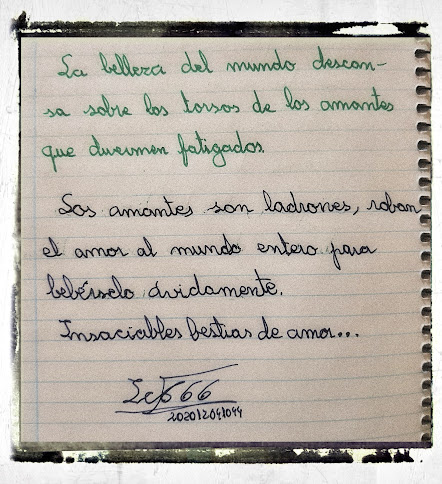 La belleza del mundo descan-
sa sobre los torsos de los amantes
que duermen fatigados.
Los amantes son ladrones, roban
el amor al mundo entero para
bebérselo ávidamente.
Insaciables bestias de amor...